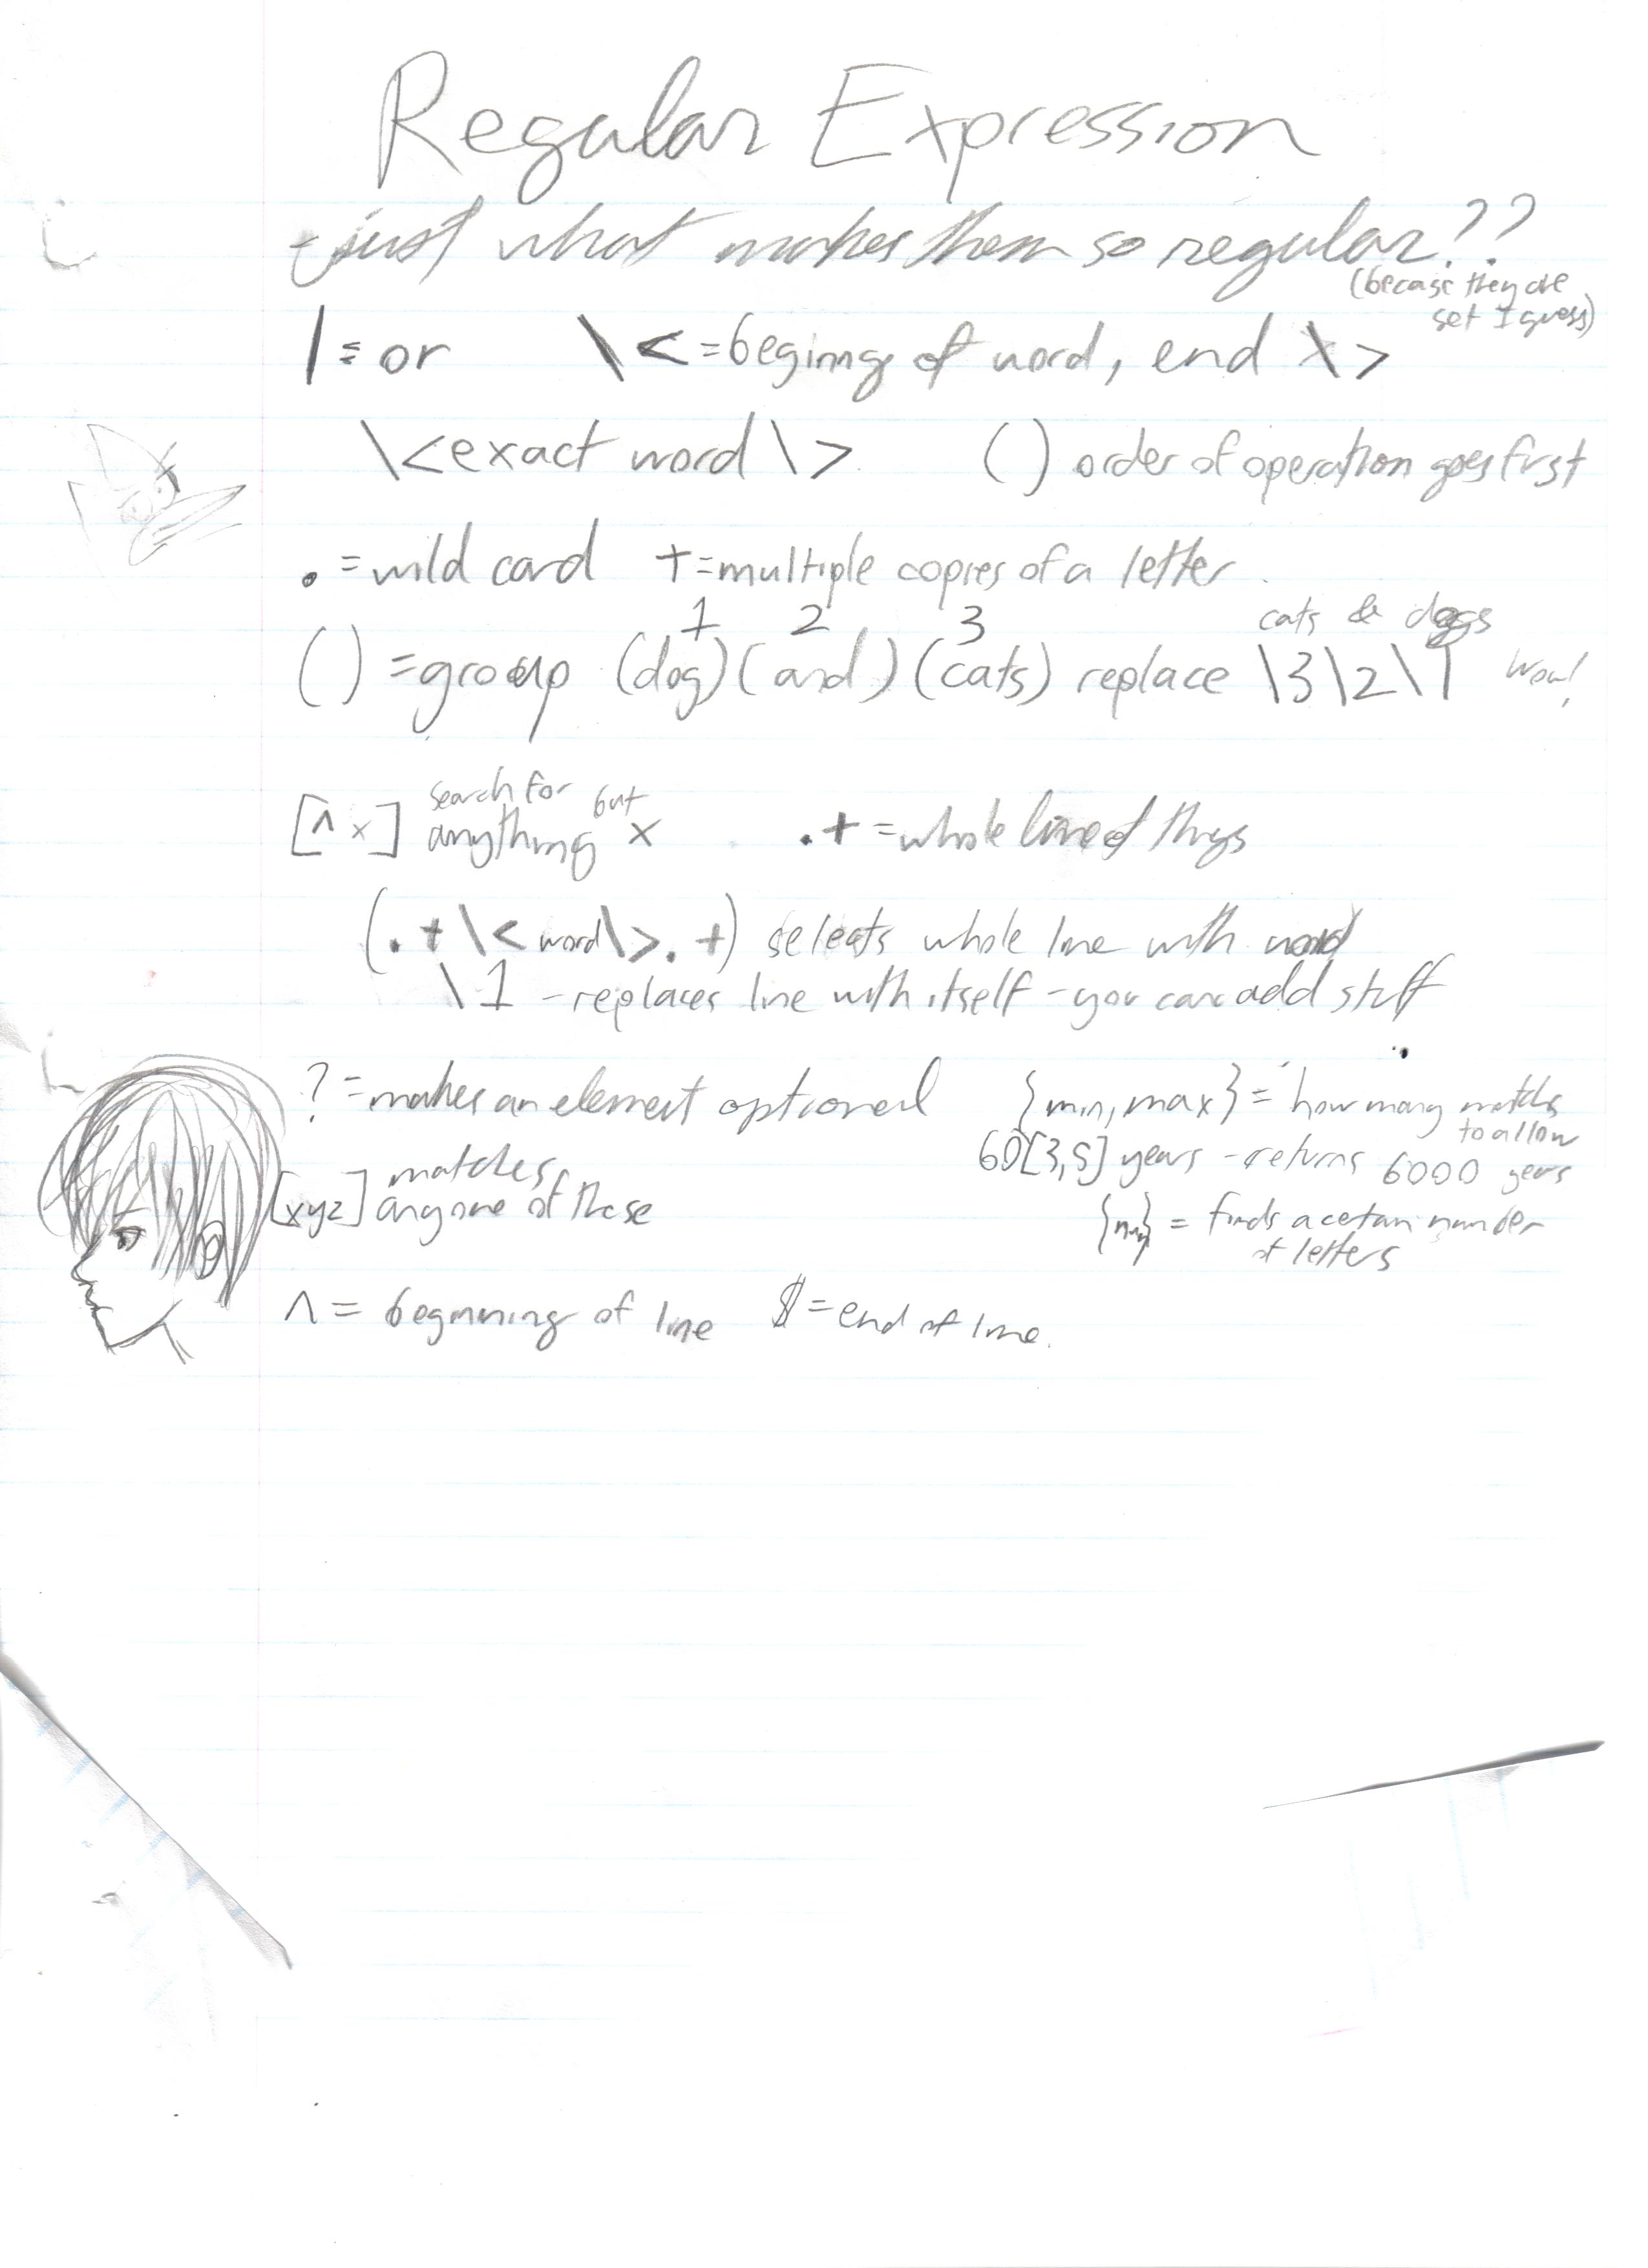 Regular Expression
- just what makes them so regular??
(becase they are
set I guess)
| = or \< = beginng of word, end \>
\<exact word\> ( ) order of operation goes first
. = wild card + = multiple copies of a letter
1 2 3 cats & dogs
( ) = group (dog)(and)(cats) replace \3\2\1 wow!
[^x] search for anything but x .+ = whole line of things
(.+\<word\>.+) selects whole line with word
\1 - replaces line with itself - you can add stuff
? = makes an element optional {min,max} = how many matches
to allow
60[3,5] years - returns 6000 years
[xyz] matches any one of these
{num} = finds a certan number
of letters
^ = beginning of line $ = end of line.